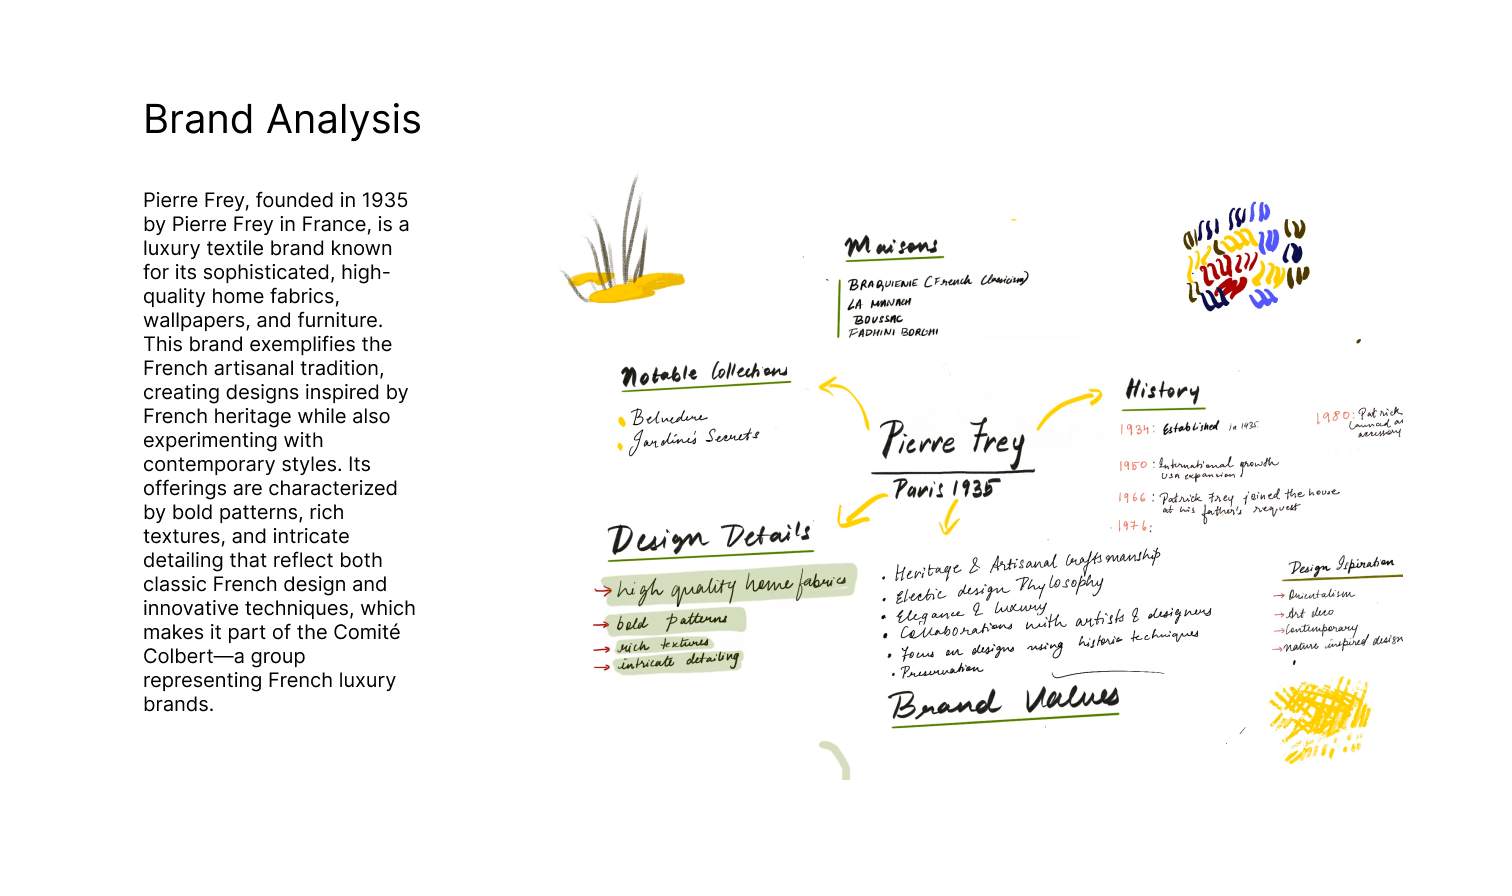 Brand Analysis
Pierre Frey, founded in 1935
by Pierre Frey in France, is a
luxury textile brand known
for its sophisticated, high-
quality home fabrics,
wallpapers, and furniture.
This brand exemplifies the
French artisanal tradition,
creating designs inspired by
French heritage while also
experimenting with
contemporary styles. Its
offerings are characterized
by bold patterns, rich
textures, and intricate
detailing that reflect both
classic French design and
innovative techniques, which
makes it part of the Comité
Colbert—a group
representing French luxury
brands.
Maisons
BRAQUENIE (French Classicism)
LA MANACH
BOUSSAC
FADHINI BORGHI
Notable Collections
Belvedere
Jardins Secrets
Pierre Frey
Paris 1935
History
1934: Established in 1935.
1950: International growth
USA expansion
1966: Patrick Frey joined the house
at his father's request
1976:
1980: Patrick
accessory
Design Details
high quality home fabrics
bold patterns
rich textures
intricate detailing
Heritage & Artisanal Craftsmanship
Electic design Phylosophy
Elegance & luxury
Collaborations with artists & designers
Focus on designs using historic techniques
Preservation
Brand Values
Design Ispiration
Orientalism
Art deco
Contemporary
nature inspired design